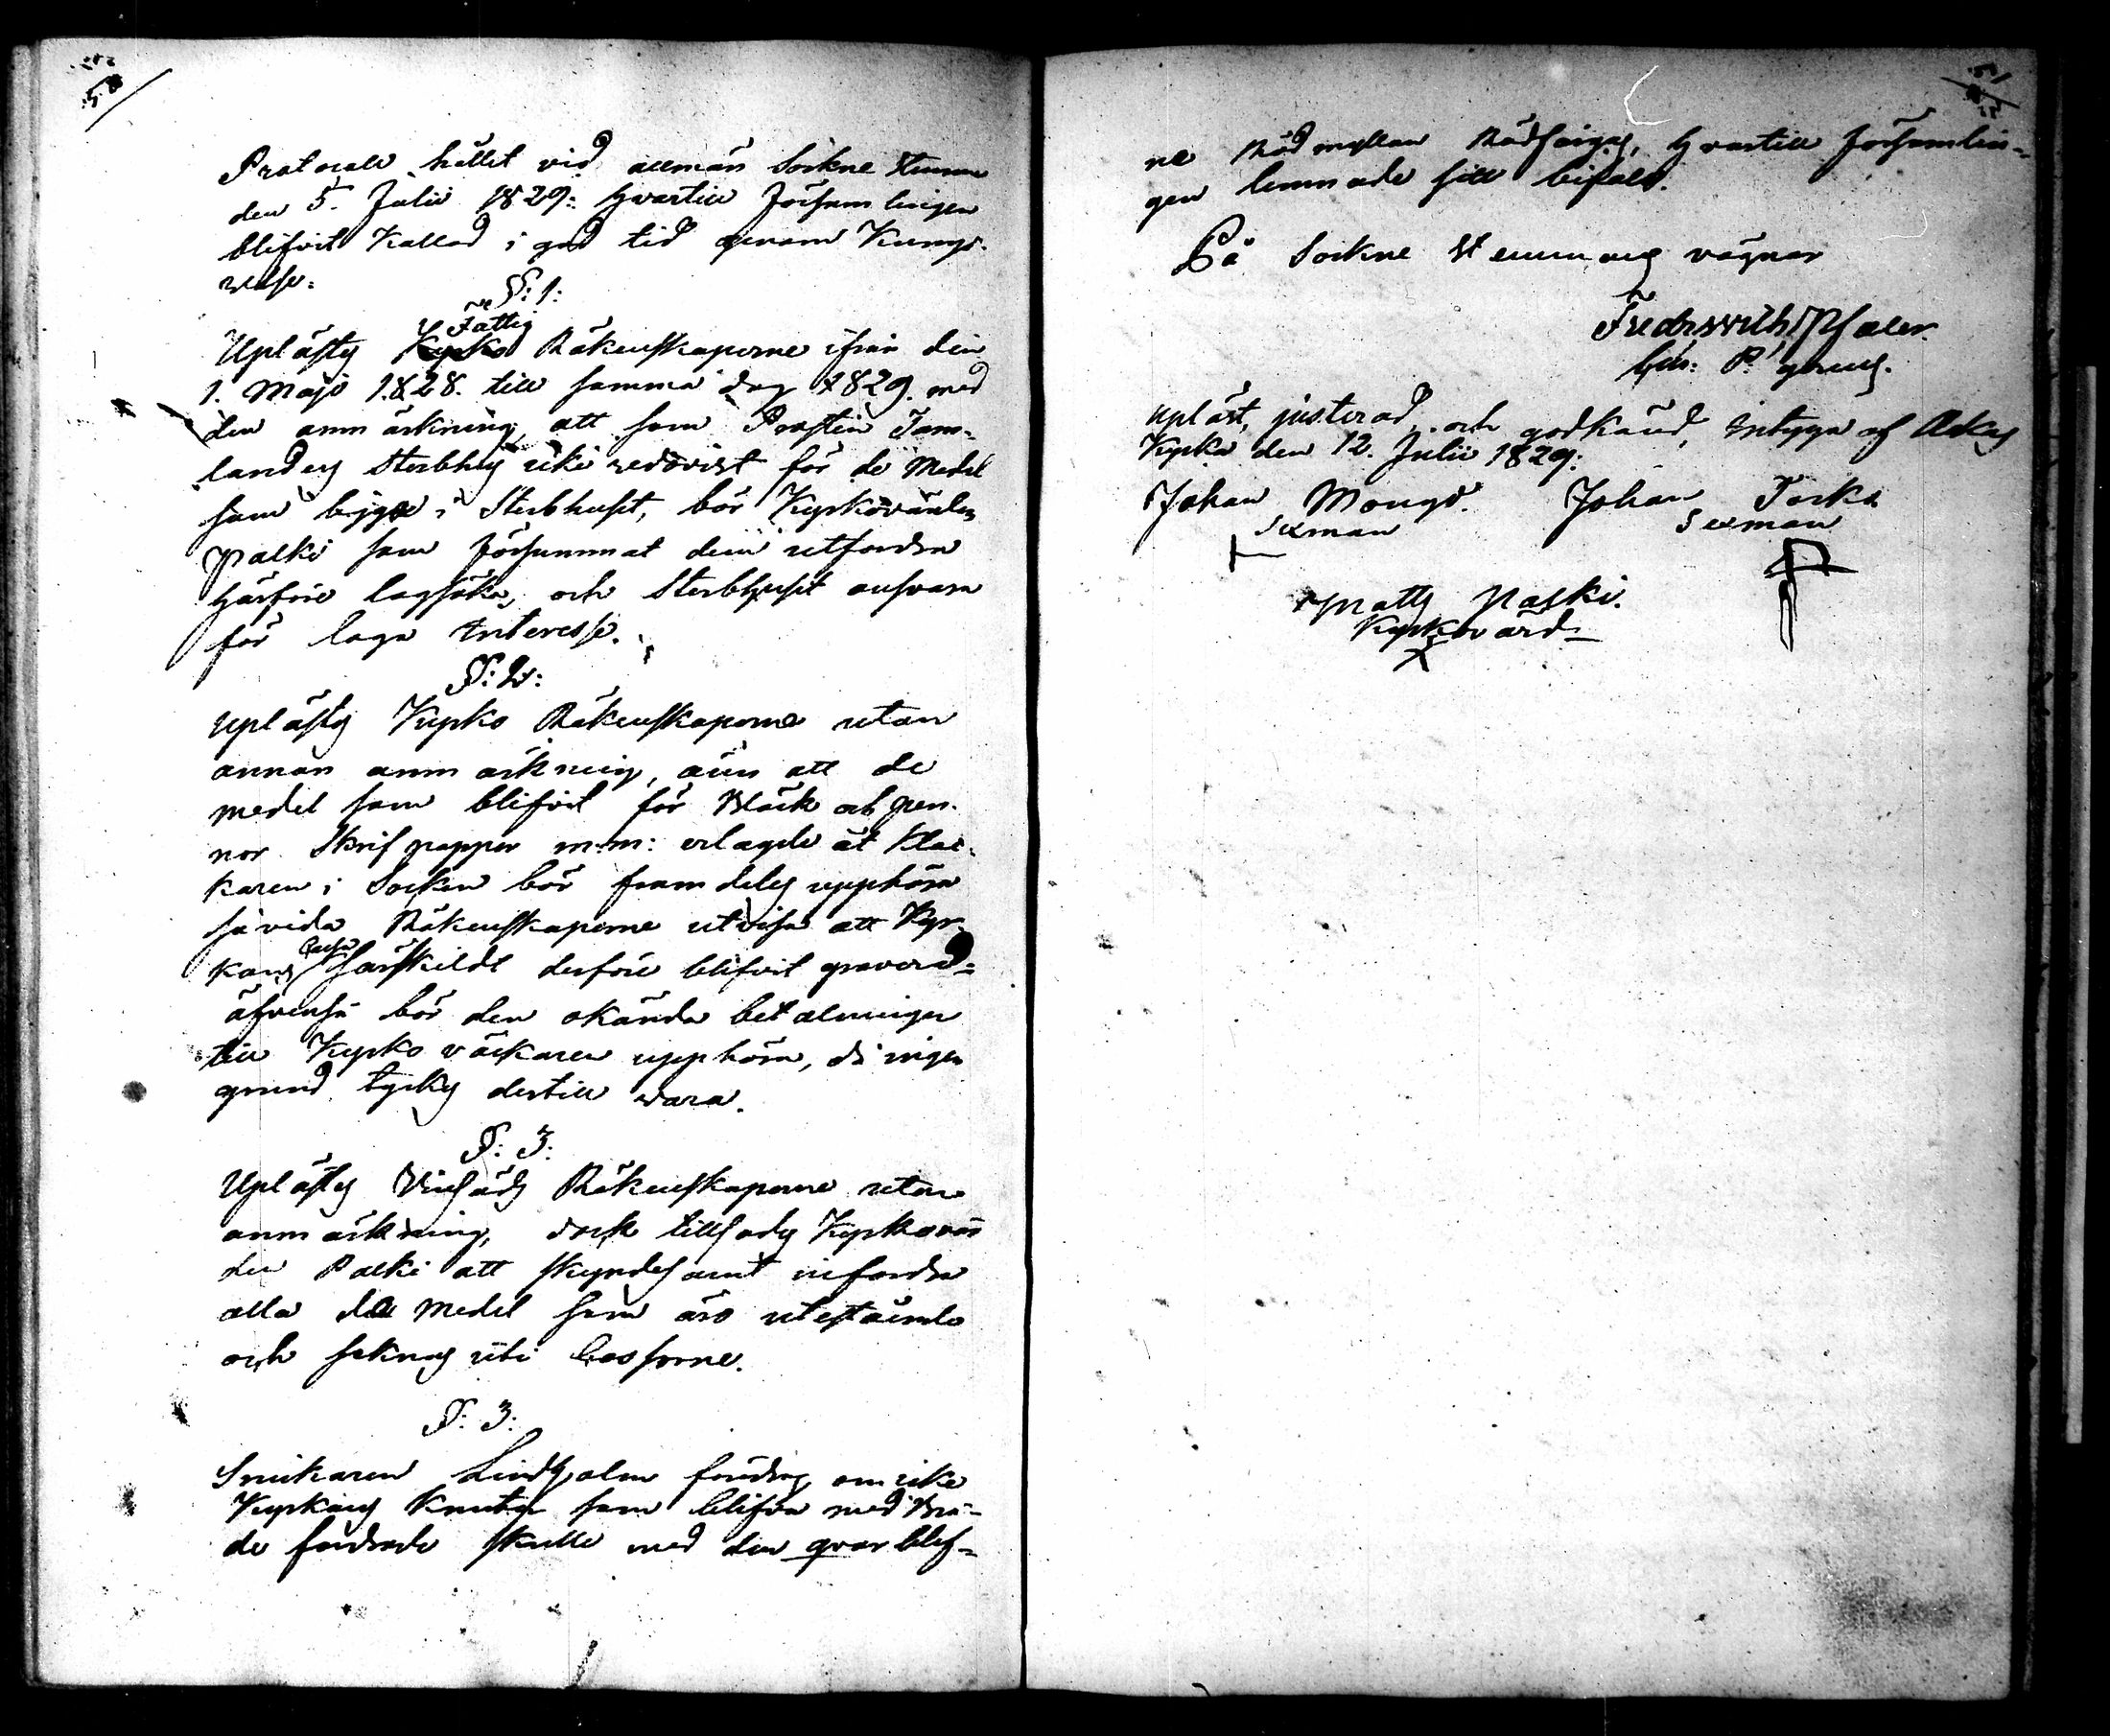 50
Protocoll hållet vid allmän Sockne Stemma
den 5. Julii 1829: hvartill Församlingen
blifvit Kallad i god tid genom Kungö-
relse:
§: 1:
Fattig
Uplästes Kyrko Räkenskaperne ifrån den
1. Maji 1828. till samma dag 1829. med
den anmärkning, att som Prosten Tam-
landers Sterbhus icke redovist för de Medel
som i Sterbhuset, bör Kyrkovärden
Palki som försummat dem utfordra
härföre lagsökas, och Sterbhuset ansvara
för laga Interesse.
§: 2:
Uplästes Kyrko Räkenskaperne utan
annan anmärkning, än att de
medel som blifvit för Bläck och pen-
nor Skrifpapper m:m: erlagde åt Kloc-
karen i Socken bör framdeles upphöra
såvida Räkenskaperne utvisa att Kyr-
kans Cassa särskildt derföre blifvit graverad=
äfvenså bör den okända betalningen
till Kyrko väckaren upphöra, då ingen
grund tyckes dertill vara.
§: 3:
Uplästes Räkenskaperne utan
anmärkning, dock tillsades Kyrkovär
den Palki att skyndesamt infordra
alla de Medel som äro utestående
och saknas uti Cassorne.
§: 3:
Snickaren Lindholm om icke
Kyrkans Knutar som blifva med Brä-
de fodrade skulle med den qvar blef-
51
ne Rödmyllan Rödfärgas, hvartill Församlin-
gen lemnade sitt bifall.
På Sockne Stemmans vägnar
Fredr Wilh Pfaler.
Upläst, justerad, och godkänd, intyga af Kyrka den 12. Julii 1829:
Johan Mongs. Johan Torka
Sexman Sexman
Matts Paski.
Kyrkovärd